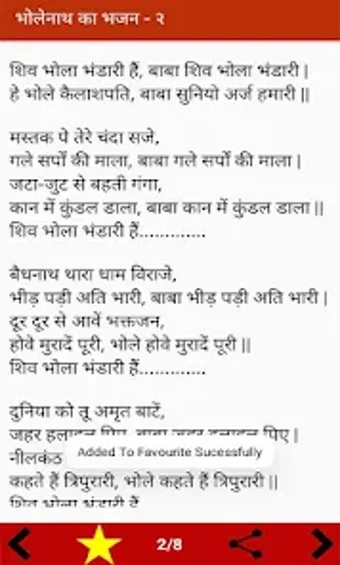 भोलेनाथ का भजन - २
शिव भोला भंडारी हैं, बाबा शिव भोला भंडारी |
हे भोले कैलाशपति, बाबा सुनियो अर्ज हमारी ||
मस्तक पे तेरे चंदा सजे,
गले सर्पों की माला, बाबा गले सर्पों की माला |
जटा-जुट से बहती गंगा,
कान में कुंडल डाला, बाबा कान में कुंडल डाला ||
शिव भोला भंडारी हैं.............
बैधनाथ थारा धाम विराजे,
भीड़ पड़ी अति भारी, बाबा भीड़ पड़ी अति भारी |
दूर दूर से आवें भक्तजन,
होवे मुरादें पूरी, भोले होवे मुरादें पूरी ||
शिव भोला भंडारी हैं.............
दुनिया को तू अमृत बाटें,
जहर हलाहल पिए, बाबा जहर हलाहल पिए |
नीलकंठ
Added To Favourite Sucessfully
कहते हैं त्रिपुरारी, भोले कहते हैं त्रिपुरारी ||
शिव भोला भंडारी हैं
2/8